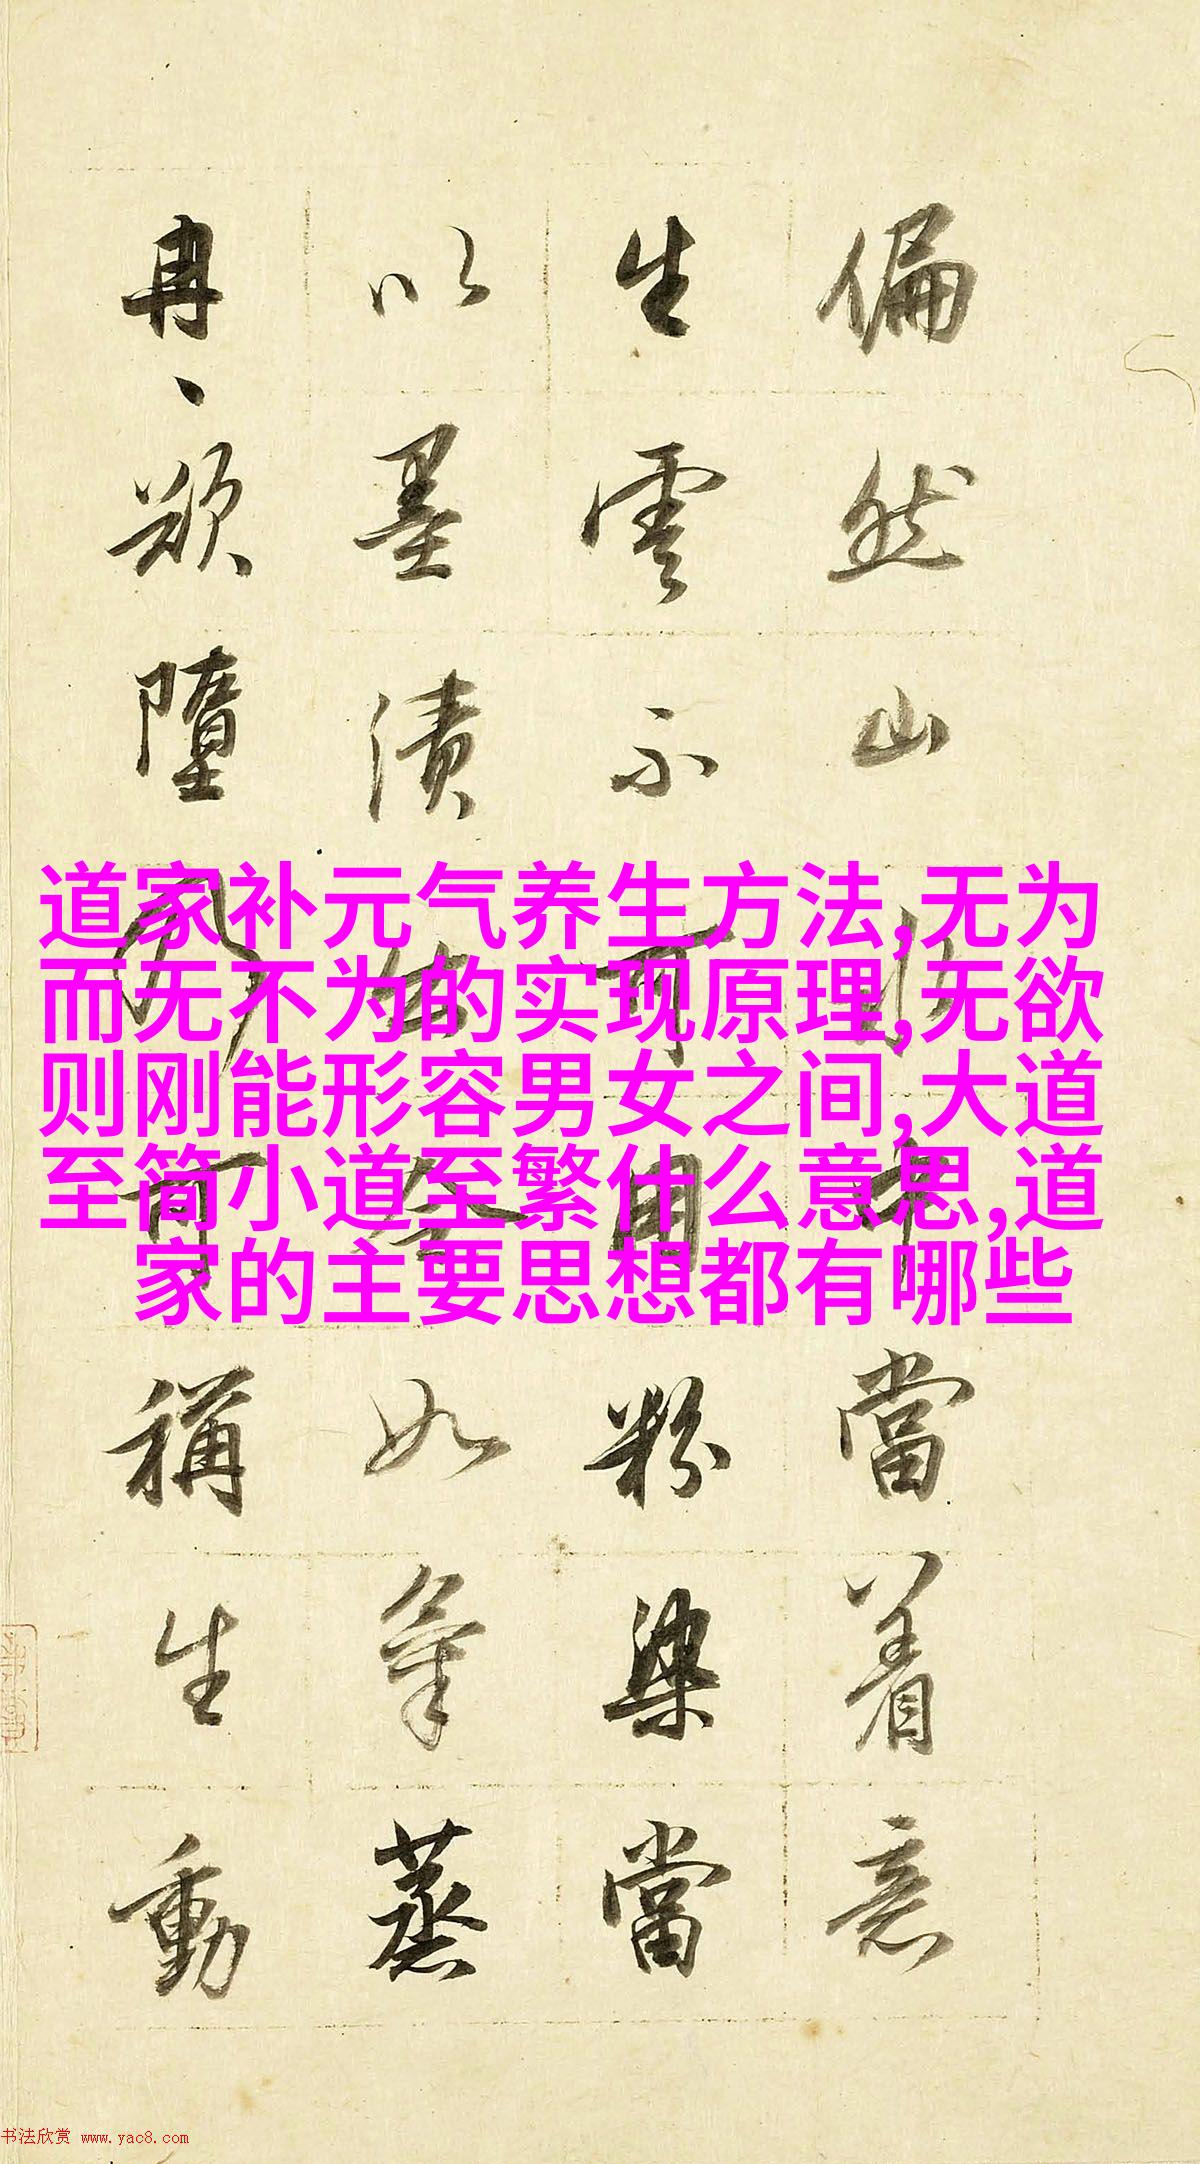 偏然山水中當着意
生雲不可用粉染當
以墨漬出令如氣蒸
冉々欲墮乃可稱生動
道家补元气养生方法,无为
而无不为的实现原理,无欲
则刚能形容男女之间,大道
至简小道至繁什么意思,道
家的主要思想都有哪些
书法欣赏 www.yac8.com